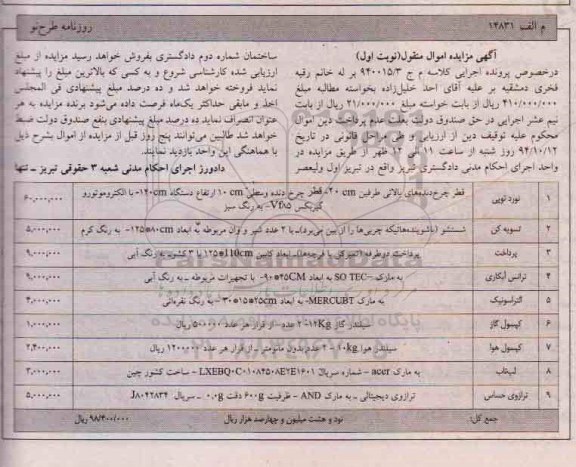 م الف ۱۴۸۳۱
روزنامه طرح‌نو
آگهی مزایده اموال منقول(نوبت اول)
درخصوص پرونده اجرایی کلاسه م ج ۹۴۰۰۱۵/۳ بر له خانم رقیه
فخری دمشقیه بر علیه آقای احد خلیل‌زاده بخواسته مطالبه مبلغ
۴۱۰/۰۰۰/۰۰۰ ریال از بابت خواسته مبلغ ۲۱/۰۰۰/۰۰۰ ریال از بابت
نیم عشر اجرایی در حق صندوق دولت بعلت عدم پرداخت دین اموال
محکوم علیه توقیف دین از ارزیابی و طی مراحل قانونی در تاریخ
۹۴/۱۰/۱۲ روز شنبه از ساعت ۱۱ الی ۱۲ ظهر از طریق مزایده در
واحد اجرای احکام مدنی دادگستری تبریز واقع در تبریز اول ولیعصر
ساختمان شماره دوم دادگستری بفروش خواهد رسید مزایده از مبلغ
ارزیابی شده کارشناسی شروع و به کسی که بالاترین مبلغ را پیشنهاد
نماید فروخته خواهد شد و ده درصد مبلغ پیشنهادی فی المجلس
اخذ و مابقی حداکثر یک‌ماه فرصت داده می‌شود برنده مزایده به هر
عنوان انصراف نماید ده درصد مبلغ پیشنهادی بنفع صندوق دولت ضبط
خواهد شد طالبین می‌توانند پنج روز قبل از مزایده از اموال بشرح ذیل
با هماهنگی این واحد بازدید نمایند.
دادورز اجرای احکام مدنی شعبه ۳ حقوقی تبریز ـ تنها
۱ نورد توپی قطر چرخ‌دنده‌های بالائی طرفین ۲۰cm- قطر چرخ دنده وسطی ۱۰cm ارتفاع دستگاه ۱۲۰cm- با الکتروموتورو گیربکس Vf۸۵- به رنگ سبز ۶۰,۰۰۰,۰۰۰
۲ تسویه کن شستشو (باشوینده‌هائیکه چربی‌ها را از بین می‌برد)ـ با ۲ عدد شیر و وان مربوطه به ابعاد ۸۰cm*۱۲۵- به رنگ کرم ۵,۰۰۰,۰۰۰
۳ پرداخت پرداخت دوطرفه ابعاد کابین 110cm*۱۲۵ به رنگ آبی ۹,۰۰۰,۰۰۰
۴ ترانس آبکاری به مارک SO TEC- به ابعاد ۲۵CM*۹۰- با تجهیزات مربوطه ـ به رنگ آبی ۹,۰۰۰,۰۰۰
۵ التراسونیک به مارک MERCUBT- به ابعاد ۲۵cm*۱۵*۳۰ - به رنگ نقره‌ائی ۴,۰۰۰,۰۰۰
۶ کپسول گاز سیلندر گاز ۱۴Kg- ۲ عدد - از قرار هر عدد ۵۰۰,۰۰۰ ریال ۱,۰۰۰,۰۰۰
۷ کپسول هوا سیلندر هوا ۱۰kg - ۲ عدد بدون مانومتر ـ از قرار هر عدد ۱,۲۰۰,۰۰۰ ریال ۲,۴۰۰,۰۰۰
۸ لپ‌تاب به مارک acer - شماره سریال LXEBQ۰C۰۱۰۸۴۵۰۸AE۷E۱۶۰۱ - ساخت کشور چین ۳,۰۰۰,۰۰۰
۹ ترازوی حساس ترازوی دیجیتالی ـ به مارک AND - ظرفیت ۶۰۰g دقت ۰,۰g ـ سریال J۸۰۴۲۸۳۴ ۵,۰۰۰,۰۰۰
جمع کل: نود و هشت میلیون و چهارصد هزار ریال ۹۸/۴۰۰/۰۰۰ ریال
ParsNamadData